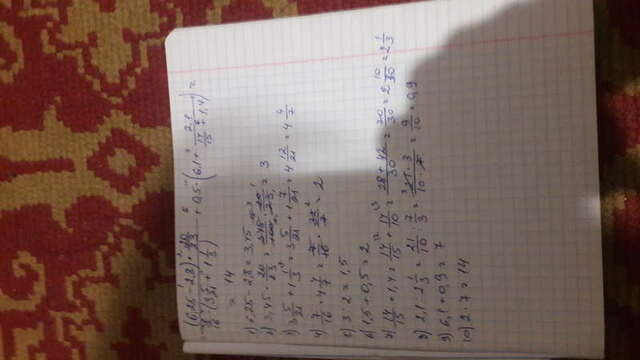 (6,25 - 2,8) · 20/23 / 7/16 · (3 5/21 + 1 1/3) + 0,5 · (6,1 + 2,1 / 14/15 + 1,4) =
= 14
1) 6,25 - 2,8 = 3,45
2) 3,45 · 20/23 = 345/100 · 20/23 = 3
3) 3 5/21 + 1 1/3 = 3 5/21 + 1 7/21 = 4 12/21 = 4 4/7
4) 7/16 · 4 4/7 = 7/16 · 32/7 = 2
5) 3 : 2 = 1,5
6) 1,5 + 0,5 = 2
7) 14/15 + 1,4 = 14/15 + 14/10 = 28 + 42/30 = 70/30 = 2 10/30 = 2 1/3
8) 2,1 : 2 1/3 = 21/10 : 7/3 = 21 · 3/10 · 7 = 9/10 = 0,9
9) 6,1 + 0,9 = 7
10) 2 · 7 = 14